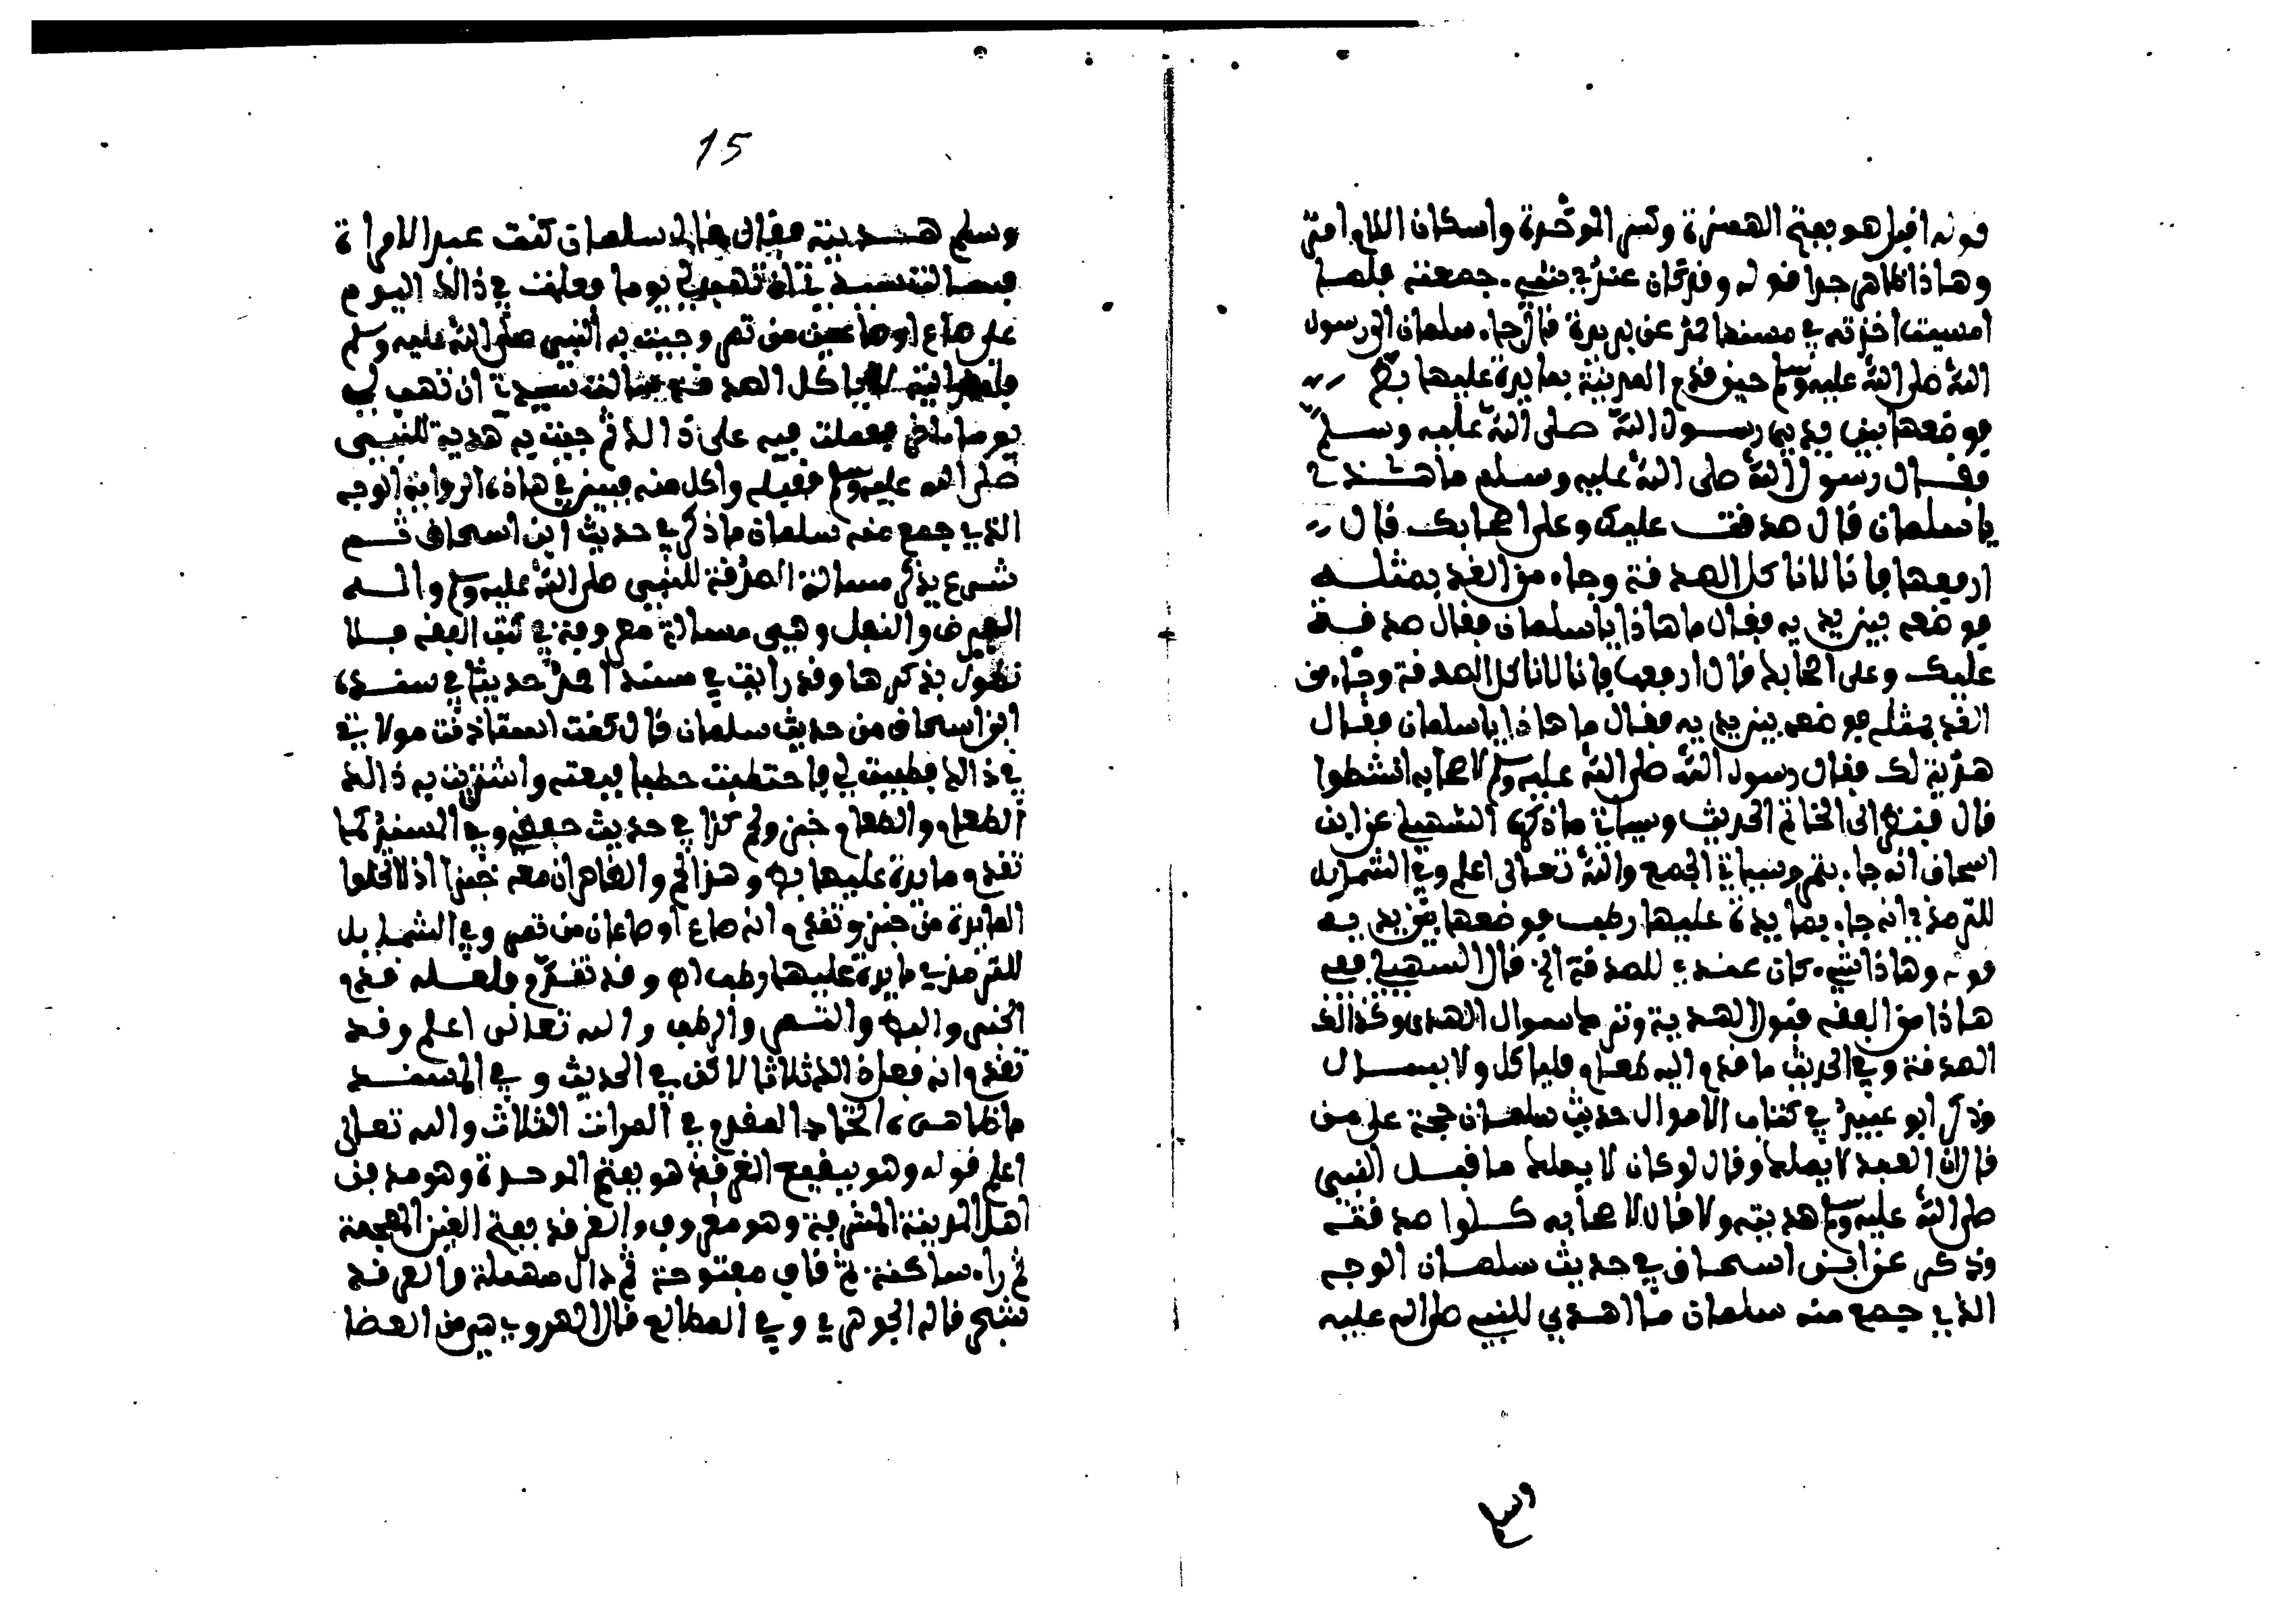 قوله اقبل هو بفتح الهمزة وكسر الموحدة واسكان اللام امتر
وهاذا ظاهر جدا قوله وقد كان عندي شيء جمعته فلما
امسيت اخذته في مسند احمد عن بريدة قال جاء سلمان الى رسول
الله صلى الله عليه وسلم حين قدم المدينة بمايدة عليها بط
فوضعها بين يدي رسول الله صلى الله عليه وسلم
فقال رسول الله صلى الله عليه وسلم ما هذه
يا سلمان قال صدقة عليك وعلى اصحابك قال
ارفعها فانا لا ناكل الصدقة وجاء من الغد بمثله
فوضعه بين يديه فقال ما هاذا يا سلمان فقال صدقة
عليك وعلى اصحابك قال ارفعها فانا لا ناكل الصدقة وجاء من
الغد بمثله فوضعه بين يديه فقال ما هاذا يا سلمان فقال
هدية لك فقال رسول الله صلى الله عليه وسلم لاصحابه انشطوا
قال فنظر الى الخاتم الحديث وسياتي ما ذكره السهيلي عن ابن
اسحاق انه جاء بتمر وسياتي الجمع والله تعالى اعلم وفي الشمايل
للترمذي انه جاء بمايدة عليها رطب فوضعها بين يديه
قوله وهاذا شيء كان عندي للصدقة الخ قال السهيلي ففي
هاذا من الفقه قبول الهدية وترك سوال المهدي وكذالك
الصدقة وفي الحديث من قدم اليه طعام فلياكل ولا يسال
وذكر ابو عبيد في كتاب الاموال حديث سلمان حجة على من
قال ان العبد لا يملك وقال لو كان لا يملك ما قبل النبي
صلى الله عليه وسلم هديته ولا قال لاصحابه كلوا صدقته
وذكر عن ابن اسحاق في حديث سلمان الوجه
الذي جمع منه سلمان ما اهدي للنبي صلى الله عليه
15
وسلم هدية فقال قال سلمان كنت عبدا لامراة
فسالت سيدتي ان تهب لي يوما فعملت في ذالك اليوم
على صاع او صاعين من تمر وجيت به النبي صلى الله عليه وسلم
فلما رايته لا ياكل الصدقة سالت سيدتي ان تهب لي
يوما اخر فعملت فيه على ذالك ثم جيت به هدية للنبي
صلى الله عليه وسلم فقبله واكل منه فبين في هاذه الرواية الوجه
الذي جمع منه سلمان ما ذكر في حديث ابن اسحاق ثم
شرع يذكر مسالة الصدقة للنبي صلى الله عليه وسلم واله
الفرض والنفل وهي مسالة معروفة في كتب الفقه فلا
نطول بذكرها وقد رايت في مسند احمد حديثا في سنده
ابن اسحاق من حديث سلمان قال كنت استاذنت مولاتي
في ذالك فطيبت لي فاحتطبت حطبا فبعته واشتريت به ذالك
الطعام والطعام خبز ولحم كذا في حديث جعفر وفي المسند كما
تقدم مايدة عليها بط وهذا لحم والظاهر ان معه خبزا اذ لا تخلوا
المايدة من خبز وتقدم انه صاع او صاعان من تمر وفي الشمايل
للترمذي مايدة عليها رطب اه وقد تقدم ولعله قدم
الخبز والبط والتمر والرطب والله تعالى اعلم وقد
تقدم انه فعل ذالك ثلاثا لاكن في الحديث وفي المسند
ما ظاهره اتحاد المقدم في المرات الثلاث والله تعالى
اعلم قوله وهو ببقيع الغرقد هو بفتح الموحدة وهو مدفن
اهل المدينة المشرفة وهو معروف والغرقد بفتح الغين المعجمة
ثم راء ساكنة ثم قاف مفتوحة ثم دال مهملة والغرقد
شجر قاله الجوهري وفي المطالع قال الهروي هي من العضا